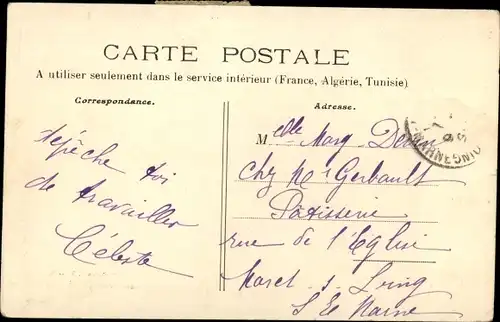 CARTE POSTALE
A utiliser seulement dans le service intérieur (France, Algérie, Tunisie)
Correspondance.
Adresse.
dépêche toi
de travailler
Céleste
Melle Marg
chez Mr Gerbault
Pâtisserie
rue de l'Eglise
Moret s Loing
S et Marne